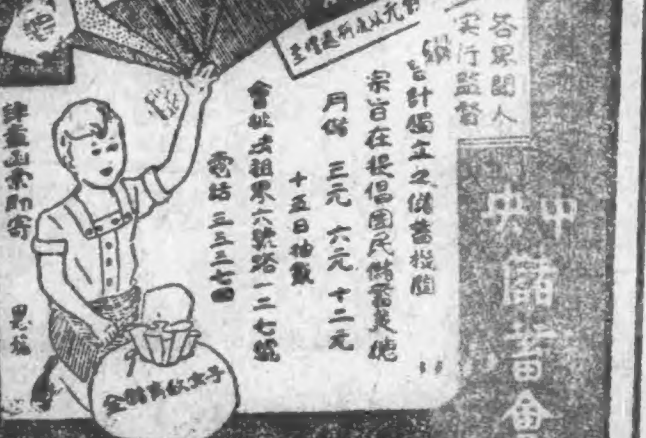 各界聞人
实行監督
中央
儲蓄會
會計獨立之儲蓄機關
宗旨在提倡國民儲蓄美德
月儲 三元 六元 十二元
十五日抽籤
會址法租界六號路一二七號
電話 三三三七四
詳章函索即寄